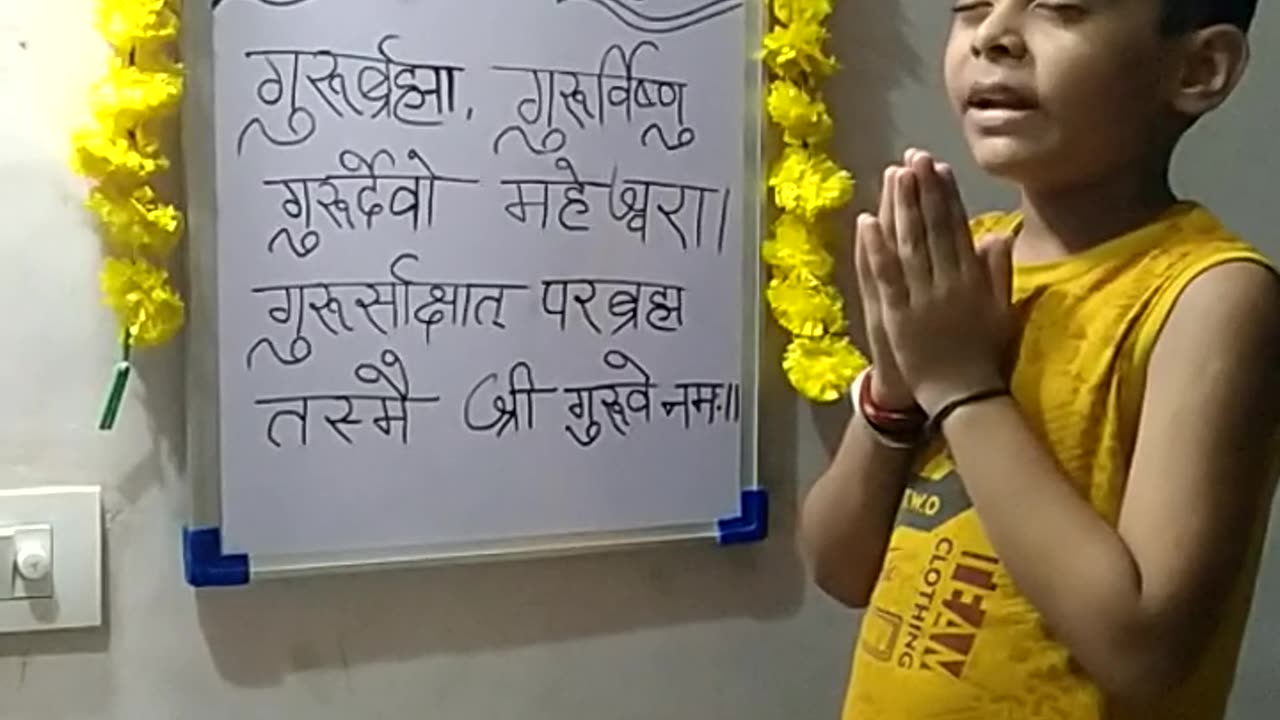 गुरूर्ब्रह्मा, गुरूर्विष्णु
गुरूर्देवो महेश्वरा।
गुरूर्साक्षात् परब्रह्म
तस्मै श्री गुरूवे नमः।।
TW.O
TEAM
CLOTHING